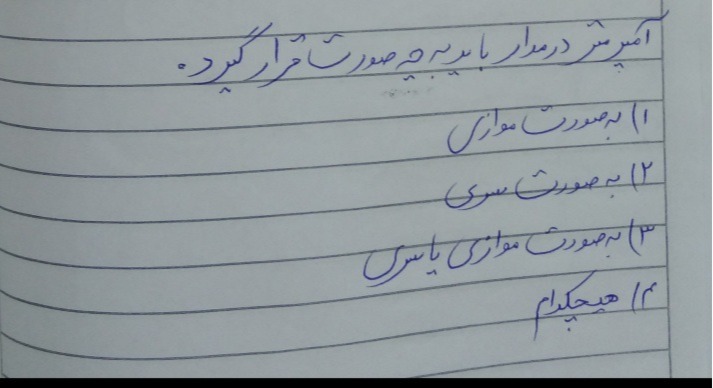 آمپرمتر در مدار باید به چه صورت قرار گیرد.
۱) به صورت موازی
۲) به صورت سری
۳) به صورت موازی یا سری
۴) هیچکدام